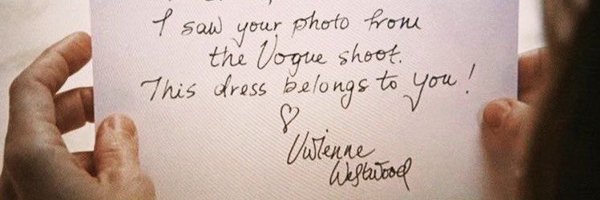 I saw your photo from
the Vogue shoot.
This dress belongs to you!
Vivienne
Westwood